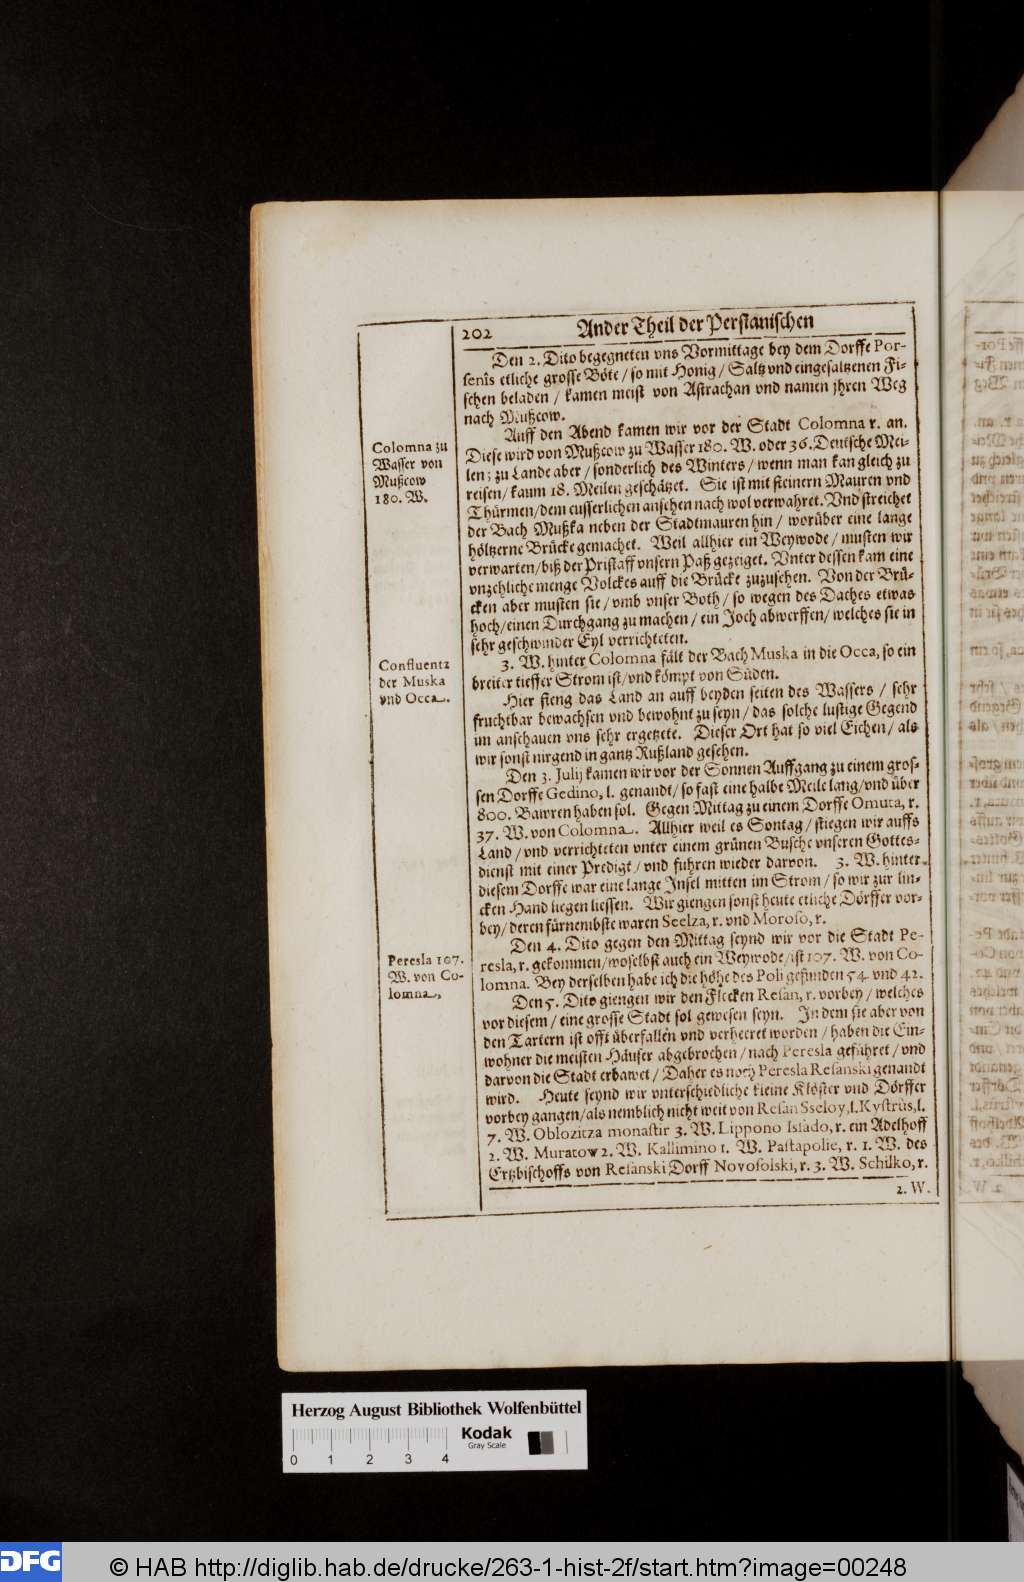 202 Ander Theil der Persianischen
Den 2. Dito begegneten vns Vormittage bey dem Dorffe Por-
senîs etliche grosse Böte / so mit Honig / Saltz vnd eingesaltzenen Fi-
schen beladen / kamen meist von Astrachan vnd namen jhren Weg
nach Mußcow.
Auff den Abend kamen wir vor der Stadt Colomna r. an.
Colomna zu
Wasser von
Mußcow
180. W.
Diese wird von Mußcow zu Wasser 180. W. oder 36. Deutsche Mei-
len; zu Lande aber / sonderlich des Winters / wenn man kan gleich zu
reisen / kaum 18. Meilen geschätzet. Sie ist mit steinern Mauren vnd
Thürmen / dem eusserlichen ansehen nach wol verwahret. Vnd streichet
der Bach Mußka neben der Stadtmauren hin / worüber eine lange
höltzerne Brücke gemachet. Weil allhier ein Weywode / musten wir
verwarten / biß der Pristaff vnsern Paß gezeiget. Vnter dessen kam eine
vnzehliche menge Volckes auff die Brücke zuzusehen. Von der Brü-
cken aber musten sie / vmb vnser Both / so wegen des Daches etwas
hoch / einen Durchgang zu machen / ein Joch abwerffen / welches sie in
sehr geschwinder Eyl verrichteten.
Confluentz
der Muska
vnd Occa.
3. W. hinter Colomna fält der Bach Muska in die Occa, so ein
breiter tieffer Strom ist / vnd kömpt von Süden.
Hier fieng das Land an auff beyden seiten des Wassers / sehr
fruchtbar bewachsen vnd bewohnt zu seyn / das solche lustige Gegend
im anschauen vns sehr ergetzete. Dieser Ort hat so viel Eichen / als
wir sonst nirgend in gantz Rußland gesehen.
Den 3. Julij kamen wir vor der Sonnen Auffgang zu einem gros-
sen Dorffe Gedino, l. genandt / so fast eine halbe Meile lang / vnd über
800. Bawren haben sol. Gegen Mittag zu einem Dorffe Omuta, r.
37. W. von Colomna. Allhier weil es Sontag / stiegen wir auffs
Land / vnd verrichteten vnter einem grünen Busche vnseren Gottes-
dienst mit einer Predigt / vnd fuhren wieder darvon. 3. W. hinter
diesem Dorffe war eine lange Insel mitten im Strom / so wir zur lin-
cken Hand liegen liessen. Wir giengen sonst heute etliche Dörffer vor-
bey / deren fürnembste waren Seelza, r. vnd Moroso, r.
Peresla 107.
W. von Co-
lomna,
Den 4. Dito gegen den Mittag seynd wir vor die Stadt Pe-
resla, r. gekommen / woselbst auch ein Weywode / ist 107. W. von Co-
lomna. Bey derselben habe ich die höhe des Poli gefunden 54 vnd 42.
Den 5. Dito giengen wir den Flecken Resan, r. vorbey / welches
vor diesem / eine grosse Stadt sol gewesen seyn. In dem sie aber von
den Tartern ist offt überfallen vnd verheeret worden / haben die Ein-
wohner die meisten Häuser abgebrochen / nach Peresla geführet / vnd
darvon die Stadt erbawet / Daher es noch Peresla Resanski genandt
wird. Heute seynd wir vnterschiedliche kleine Klöster vnd Dörffer
vorbey gangen / als nemblich nicht weit von Resan Sseloy, l. Kystrùs, l.
7. W. Oblozitza monastir 3. W. Lippono Issado, r. ein Adelhoff
2. W. Muratow 2. W. Kallimino 1. W. Pastapolie, r. 1. W. des
Ertzbischoffs von Resanski Dorff Novosolski, r. 3. W. Schilko, r.
2. W.
Herzog August Bibliothek Wolfenbüttel
Kodak
Gray Scale
0 1 2 3 4
DFG © HAB http://diglib.hab.de/drucke/263-1-hist-2f/start.htm?image=00248